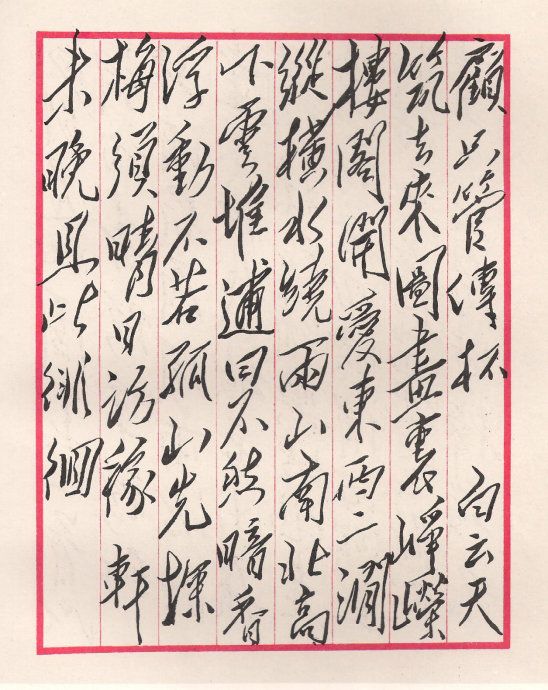 顧只管傳杯 白云天
筑去來圖畫裏崢嶸
樓閣開愛東西二澗
縱橫水繞兩山南北高
下雲堆逋曰不然暗香
浮動不若孤山先探
梅須晴日訪稼軒
未晚且此徘徊